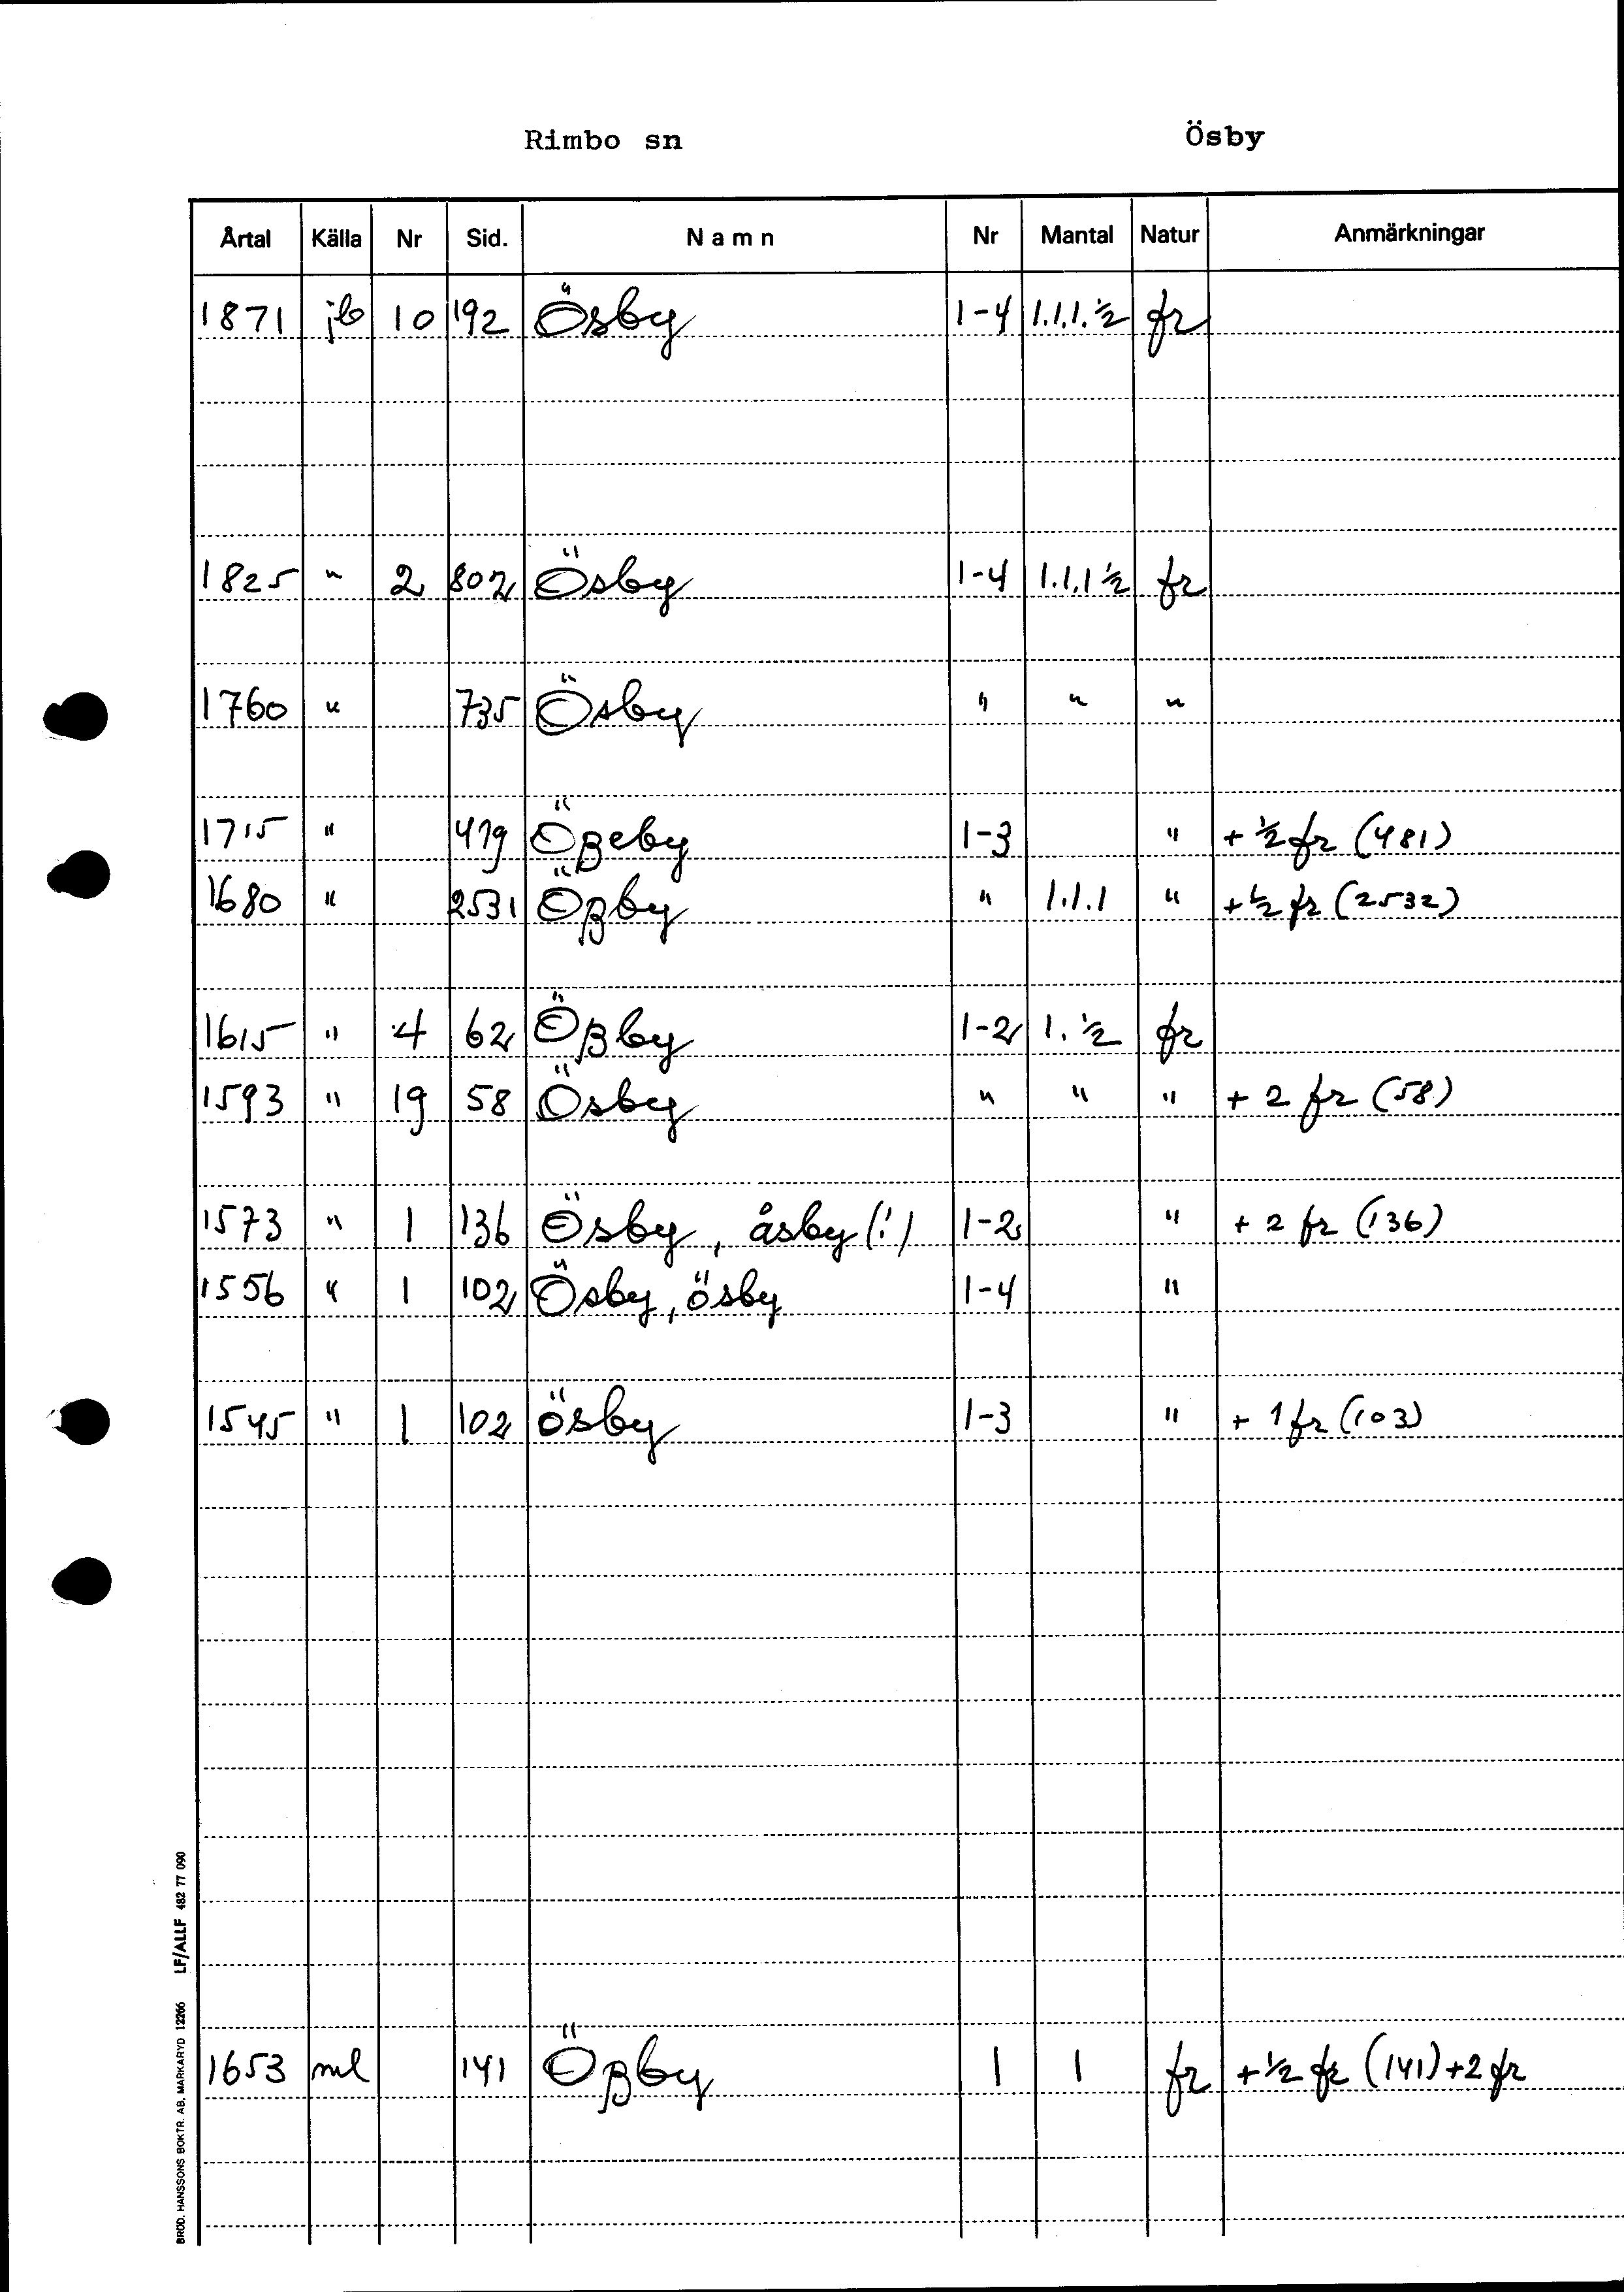 Rimbo sn Ösby
Årtal Källa Nr Sid. Namn Nr Mantal Natur Anmärkningar
1871 jb 10 192 Ösby 1-4 1.1.1.½ fr
1825 " 2 802 Ösby 1-4 1.1.1 ½ fr
1760 " 735 Ösby " " "
1715 " 479 Ößeby 1-3 " + ½ fr (481)
1680 " 2531 Ößby " 1.1.1 " + ½ fr (2532)
1615 " 4 62 Ößby 1-2 1.½ fr
1593 " 19 58 Ösby " " " + 2 fr (58)
1573 " 1 136 Ösby, åsby (!) 1-2 " + 2 fr (136)
1556 " 1 102 Ösby, ösby 1-4 "
1545 " 1 102 ösby 1-3 " + 1 fr (103)
1653 ml 141 Ößby 1 1 fr + ½ fr (141) + 2 fr
BRÖD. HANSSONS BOKTR. AB, MARKARYD 12266 LF/ALLF 482 77 090